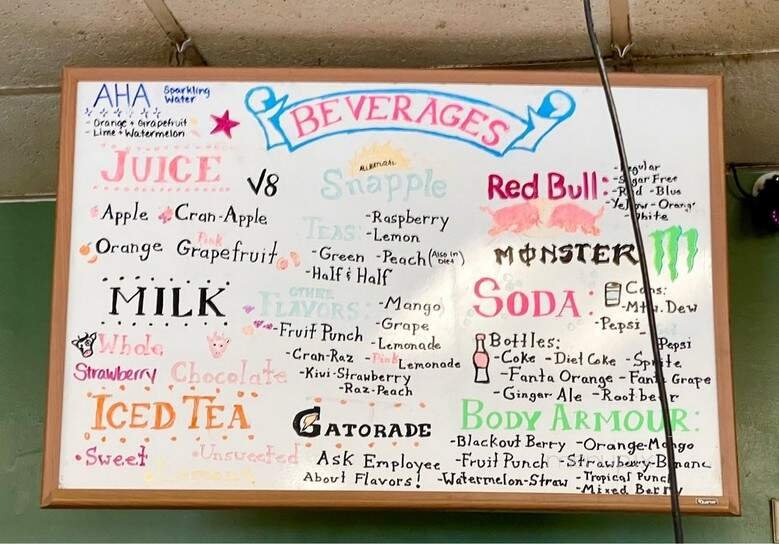 BEVERAGES
AHA Sparkling Water
- Orange + Grapefruit
- Lime + Watermelon
JUICE
V8
Apple Cran-Apple
Orange Pink Grapefruit
MILK
Whole
Strawberry Chocolate
ICED TEA
Sweet Unsweeted
Lemon
ALL NATURAL
Snapple
TEAS:
-Raspberry
-Lemon
-Green -Peach (Also in Diet)
-Half & Half
OTHER FLAVORS:
-Mango
-Fruit Punch -Grape
-Lemonade
-Cran-Raz -Pink Lemonade
-Kiwi-Strawberry
-Raz-Peach
GATORADE
Ask Employee
About Flavors!
Red Bull:
-Regular
-Sugar Free
-Red -Blue
-Yellow -Orange
-White
MONSTER
SODA:
Cans:
-Mtn. Dew
-Pepsi
Bottles:
-Pepsi
-Coke -Diet Coke -Sprite
-Fanta Orange -Fanta Grape
-Ginger Ale -Rootbeer
BODY ARMOUR:
-Blackout Berry -Orange-Mango
-Fruit Punch -Strawberry-Banana
-Watermelon-Straw -Tropical Punch
-Mixed Berry